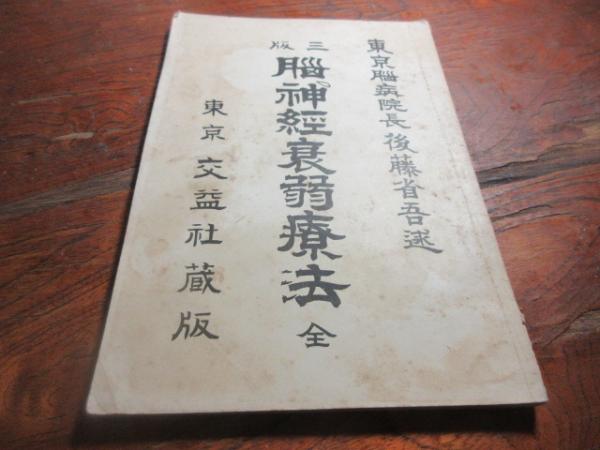 東京腦病院長後藤省吾述
三版
腦神經衰弱療法 全
東京 交益社蔵版